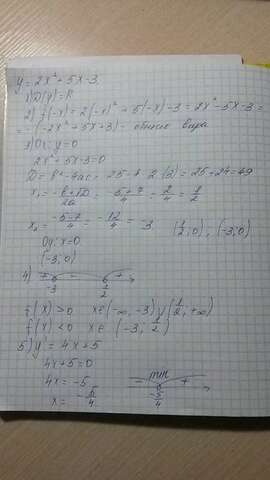 y = 2x² + 5x - 3
1) D(y) = R
2) f(-x) = 2(-x)² + 5(-x) - 3 = 2x² - 5x - 3 =
= -(-2x² + 5x + 3) - общего вида
3) Ox: y = 0
2x² + 5x - 3 = 0
D = b² - 4ac = 25 - 4 · 2 · (3) = 25 + 24 = 49
x₁ = (-b + √D)/2a = (-5 + 7)/4 = 2/4 = 1/2
x₂ = (-5 - 7)/4 = -12/4 = -3 (1/2; 0), (-3; 0)
Oy: x = 0
(-3; 0)
4) + -3 - 1/2 +
f(x) > 0 x ∈ (-∞, -3) ∪ (1/2, +∞)
f(x) < 0 x ∈ (-3, 1/2)
5) y' = 4x + 5
4x + 5 = 0
4x = -5
x = -5/4
- min +
-5/4